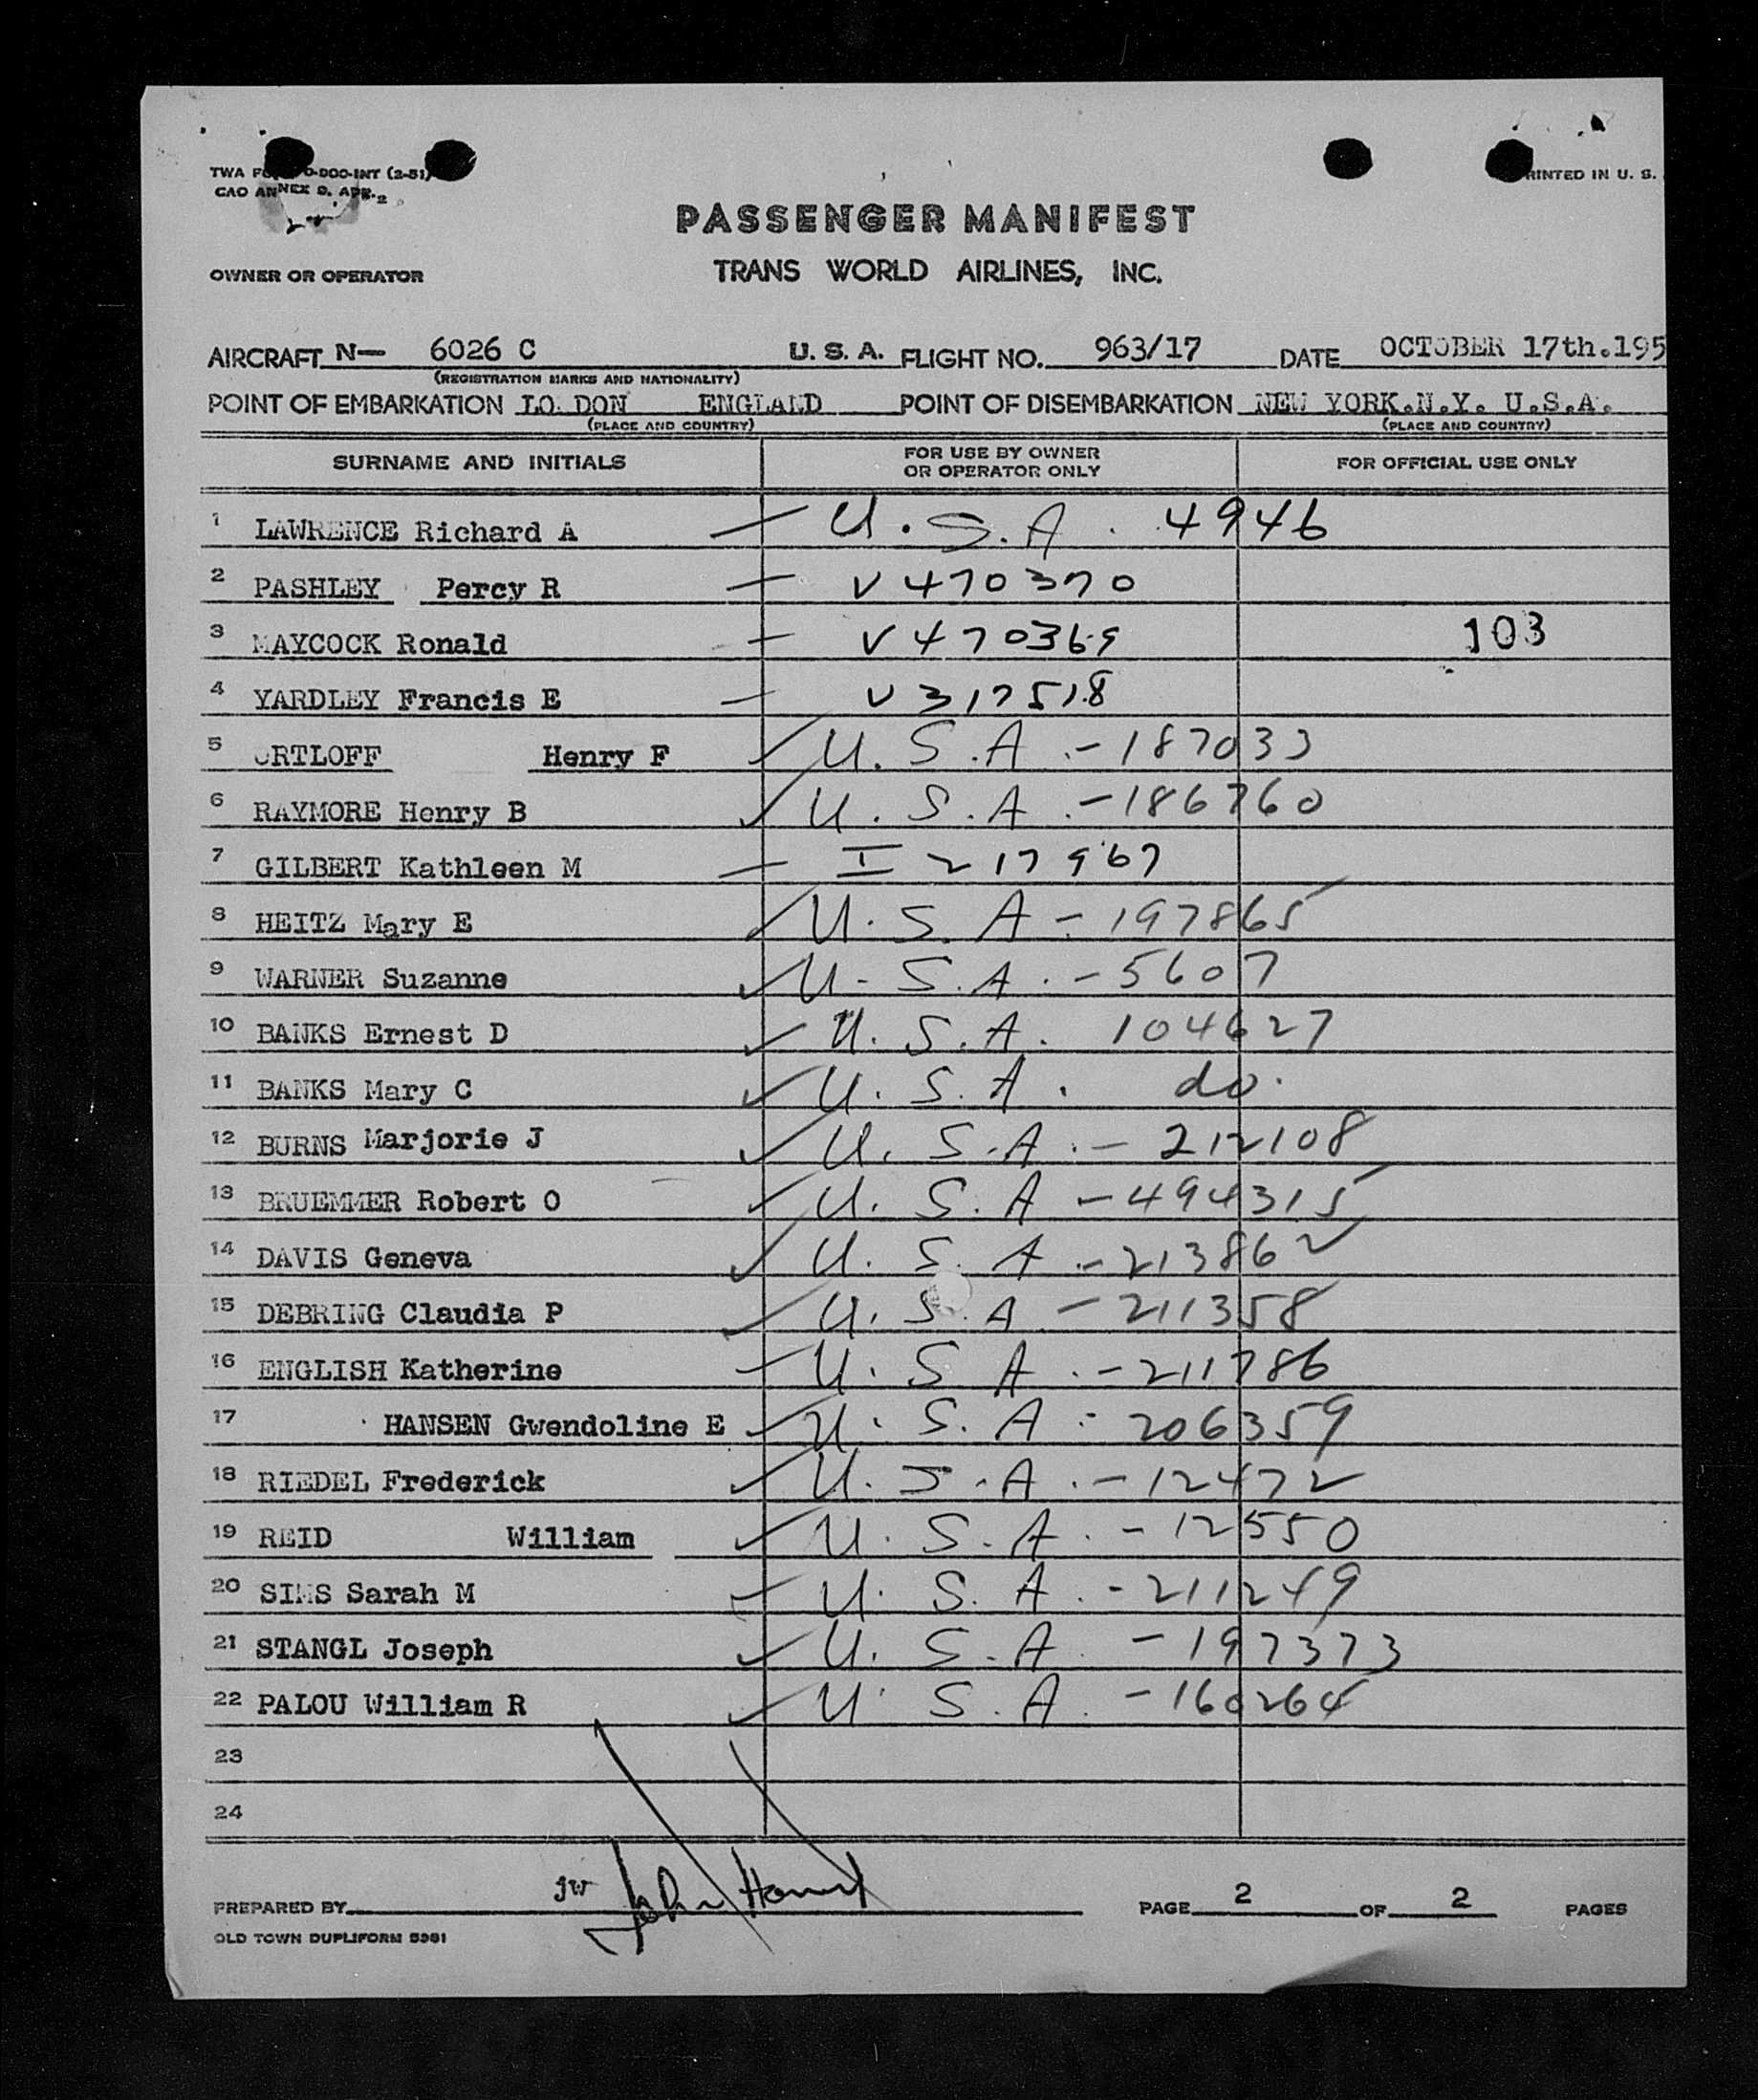 TWA F 0-000-INT (2-51)
CAO ANNEX 9. APP. 2
RINTED IN U. S.
PASSENGER MANIFEST
OWNER OR OPERATOR TRANS WORLD AIRLINES, INC.
AIRCRAFT N— 6026 C U. S. A. FLIGHT NO. 963/17 DATE OCTOBER 17th.195
(REGISTRATION MARKS AND NATIONALITY)
POINT OF EMBARKATION LO DON ENGLAND POINT OF DISEMBARKATION NEW YORK.N.Y. U.S.A.
(PLACE AND COUNTRY) (PLACE AND COUNTRY)
SURNAME AND INITIALS FOR USE BY OWNER OR OPERATOR ONLY FOR OFFICIAL USE ONLY
1 LAWRENCE Richard A U.S.A. 4946
2 PASHLEY Percy R V470370
3 MAYCOCK Ronald V470369 103
4 YARDLEY Francis E V317518
5 ORTLOFF Henry F U.S.A.-187033
6 RAYMORE Henry B U.S.A.-186760
7 GILBERT Kathleen M I 217967
8 HEITZ Mary E U.S.A-197865
9 WARNER Suzanne U.S.A.-5607
10 BANKS Ernest D U.S.A. 104627
11 BANKS Mary C U.S.A. do.
12 BURNS Marjorie J U.S.A.-212108
13 BRUEMMER Robert O U.S.A-494315
14 DAVIS Geneva U.S.A-213862
15 DEBRING Claudia P U.S.A-211358
16 ENGLISH Katherine U.S.A.-211786
17 HANSEN Gwendoline E U.S.A-206359
18 RIEDEL Frederick U.S.A.-12472
19 REID William U.S.A.-12550
20 SIMS Sarah M U.S.A.-211249
21 STANGL Joseph U.S.A-197373
22 PALOU William R U.S.A.-160264
23
24
PREPARED BY jw John PAGE 2 OF 2 PAGES
OLD TOWN DUPLIFORM 5981